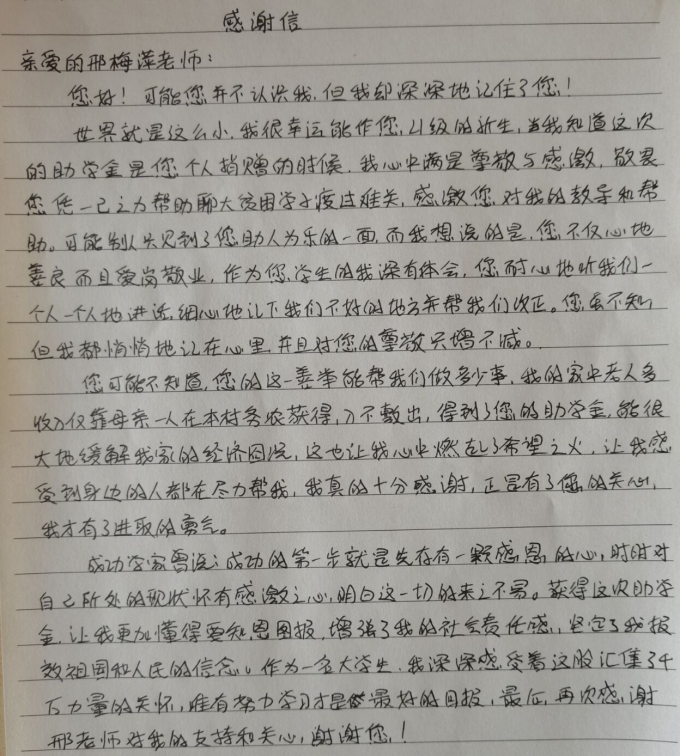 感谢信
亲爱的邢梅萍老师：
您好！可能您并不认识我，但我却深深地记住了您！
世界就是这么小，我很幸运能作您21级的新生，当我知道这次
的助学金是您个人捐赠的时候，我心中满是尊敬与感激，敬畏
您凭一己之力帮助聊大贫困学子度过难关，感激您对我的教导和帮
助。可能别人只见到了您助人为乐的一面，而我想说的是，您不仅心地
善良而且爱岗敬业，作为您学生的我深有体会，您耐心地听我们一
个人一个人地讲话，细心地记下我们不好的地方并帮我们改正。您虽不知，
但我都悄悄地记在心里，并且对您的尊敬只增不减。
您可能不知道，您的这一善举能帮我们做多少事，我的家中老人多
收入仅靠母亲一人在本村务农获得，入不敷出，得到了您的助学金，能很
大地缓解我家的经济困境，这也让我心中燃起了希望之火，让我感
受到身边的人都在尽力帮我，我真的十分感谢，正是有了您的关心，
我才有了进取的勇气。
成功学家曾说：成功的第一步就是先存有一颗感恩的心，时时对
自己所处的现状怀有感激之心，明白这一切的来之不易。获得这次助学
金，让我更加懂得要知恩图报，增强了我的社会责任感，坚定了我报
效祖国和人民的信念。作为一名大学生，我深深感受着这股汇集了千
万力量的关怀，唯有努力学习才是最好的回报，最后，再次感谢
邢老师对我的支持和关心，谢谢您！